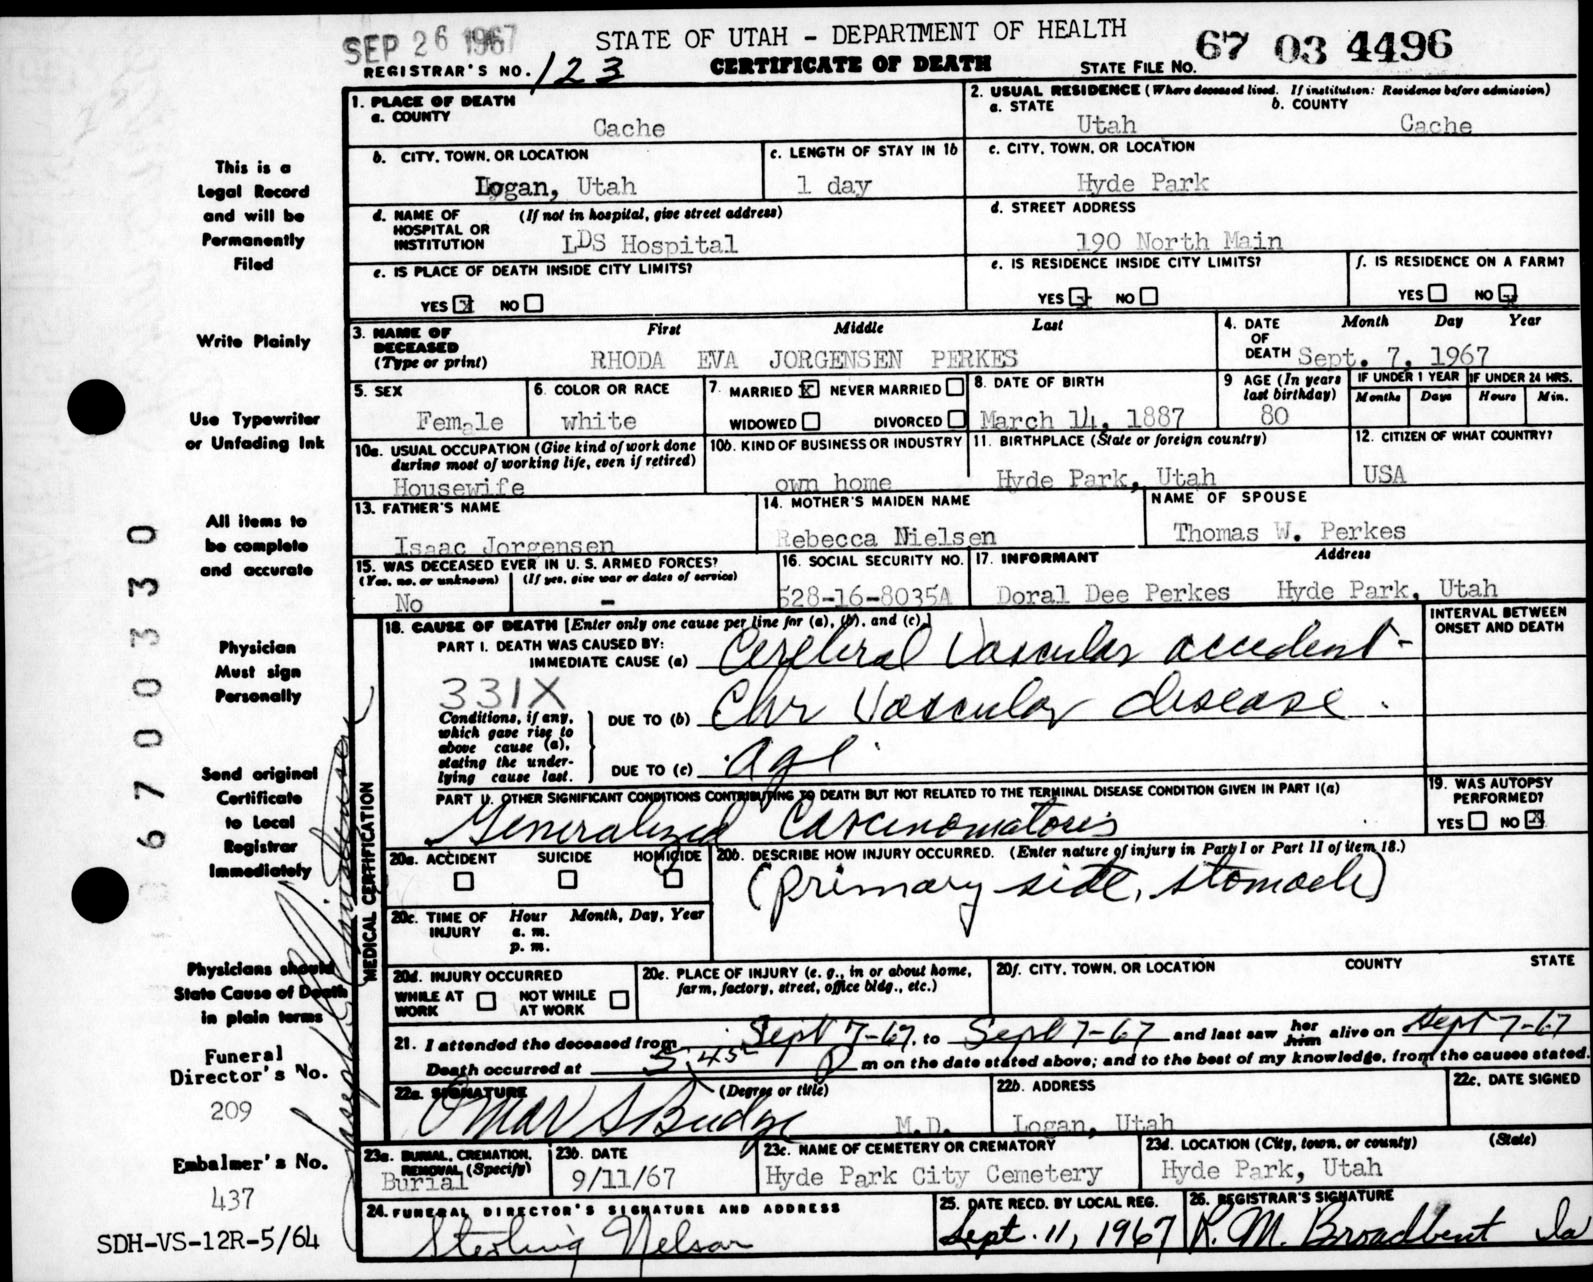 SEP 26 1967
STATE OF UTAH - DEPARTMENT OF HEALTH
67 03 4496
REGISTRAR'S NO. 123
CERTIFICATE OF DEATH
STATE FILE NO.
1. PLACE OF DEATH
a. COUNTY
Cache
2. USUAL RESIDENCE (Where deceased lived. If institution: Residence before admission)
a. STATE
b. COUNTY
Utah
Cache
b. CITY, TOWN, OR LOCATION
Logan, Utah
c. LENGTH OF STAY IN 1b
1 day
c. CITY, TOWN, OR LOCATION
Hyde Park
d. NAME OF HOSPITAL OR INSTITUTION
(If not in hospital, give street address)
LDS Hospital
d. STREET ADDRESS
190 North Main
e. IS PLACE OF DEATH INSIDE CITY LIMITS?
YES X NO
e. IS RESIDENCE INSIDE CITY LIMITS?
YES X NO
f. IS RESIDENCE ON A FARM?
YES NO X
3. NAME OF DECEASED
(Type or print)
First
Middle
Last
RHODA EVA JORGENSEN PERKES
4. DATE OF DEATH
Month Day Year
Sept. 7, 1967
5. SEX
Female
6. COLOR OR RACE
white
7. MARRIED X NEVER MARRIED
WIDOWED DIVORCED
8. DATE OF BIRTH
March 14, 1887
9 AGE (In years last birthday)
80
IF UNDER 1 YEAR
Months Days
IF UNDER 24 HRS.
Hours Min.
10a. USUAL OCCUPATION (Give kind of work done during most of working life, even if retired)
Housewife
10b. KIND OF BUSINESS OR INDUSTRY
own home
11. BIRTHPLACE (State or foreign country)
Hyde Park, Utah
12. CITIZEN OF WHAT COUNTRY?
USA
13. FATHER'S NAME
Isaac Jorgensen
14. MOTHER'S MAIDEN NAME
Rebecca Nielsen
NAME OF SPOUSE
Thomas W. Perkes
15. WAS DECEASED EVER IN U. S. ARMED FORCES?
(Yes, no, or unknown)
(If yes, give war or dates of service)
No
-
16. SOCIAL SECURITY NO.
528-16-8035A
17. INFORMANT
Address
Doral Dee Perkes Hyde Park, Utah
18. CAUSE OF DEATH [Enter only one cause per line for (a), (b), and (c).]
INTERVAL BETWEEN ONSET AND DEATH
PART I. DEATH WAS CAUSED BY:
IMMEDIATE CAUSE (a)
Cerebral Vascular accident-
331X
Conditions, if any, which gave rise to above cause (a), stating the underlying cause last.
DUE TO (b)
Chr Vascular disease.
DUE TO (c)
Age
PART II. OTHER SIGNIFICANT CONDITIONS CONTRIBUTING TO DEATH BUT NOT RELATED TO THE TERMINAL DISEASE CONDITION GIVEN IN PART I(a)
Generalized Carcinomatosis
19. WAS AUTOPSY PERFORMED?
YES NO X
20a. ACCIDENT SUICIDE HOMICIDE
20b. DESCRIBE HOW INJURY OCCURRED. (Enter nature of injury in Part I or Part II of item 18.)
(primary side, stomach)
20c. TIME OF INJURY
Hour Month, Day, Year
a. m.
p. m.
20d. INJURY OCCURRED
WHILE AT WORK
NOT WHILE AT WORK
20e. PLACE OF INJURY (e. g., in or about home, farm, factory, street, office bldg., etc.)
20f. CITY, TOWN, OR LOCATION
COUNTY
STATE
21. I attended the deceased from Sept 7-67, to Sept 7-67 and last saw her him alive on Sept 7-67
Death occurred at 5:45 P m on the date stated above; and to the best of my knowledge, from the causes stated.
22a. SIGNATURE
(Degree or title)
Omar S Budge
M.D.
22b. ADDRESS
Logan, Utah
22c. DATE SIGNED
23a. BURIAL, CREMATION, REMOVAL (Specify)
Burial
23b. DATE
9/11/67
23c. NAME OF CEMETERY OR CREMATORY
Hyde Park City Cemetery
23d. LOCATION (City, town, or county)
(State)
Hyde Park, Utah
24. FUNERAL DIRECTOR'S SIGNATURE AND ADDRESS
Sterling Nelson
25. DATE RECD. BY LOCAL REG.
Sept. 11, 1967
26. REGISTRAR'S SIGNATURE
R. M. Broadbent
MEDICAL CERTIFICATION
This is a
Legal Record
and will be
Permanently
Filed
Write Plainly
Use Typewriter
or Unfading Ink
All items to
be complete
and accurate
Physician
Must sign
Personally
Send original
Certificate
to Local
Registrar
Immediately
Physicians should
State Cause of Death
in plain terms
Funeral
Director's No.
209
Embalmer's No.
437
SDH-VS-12R-5/64
0 6 7 0 0 3 3 0